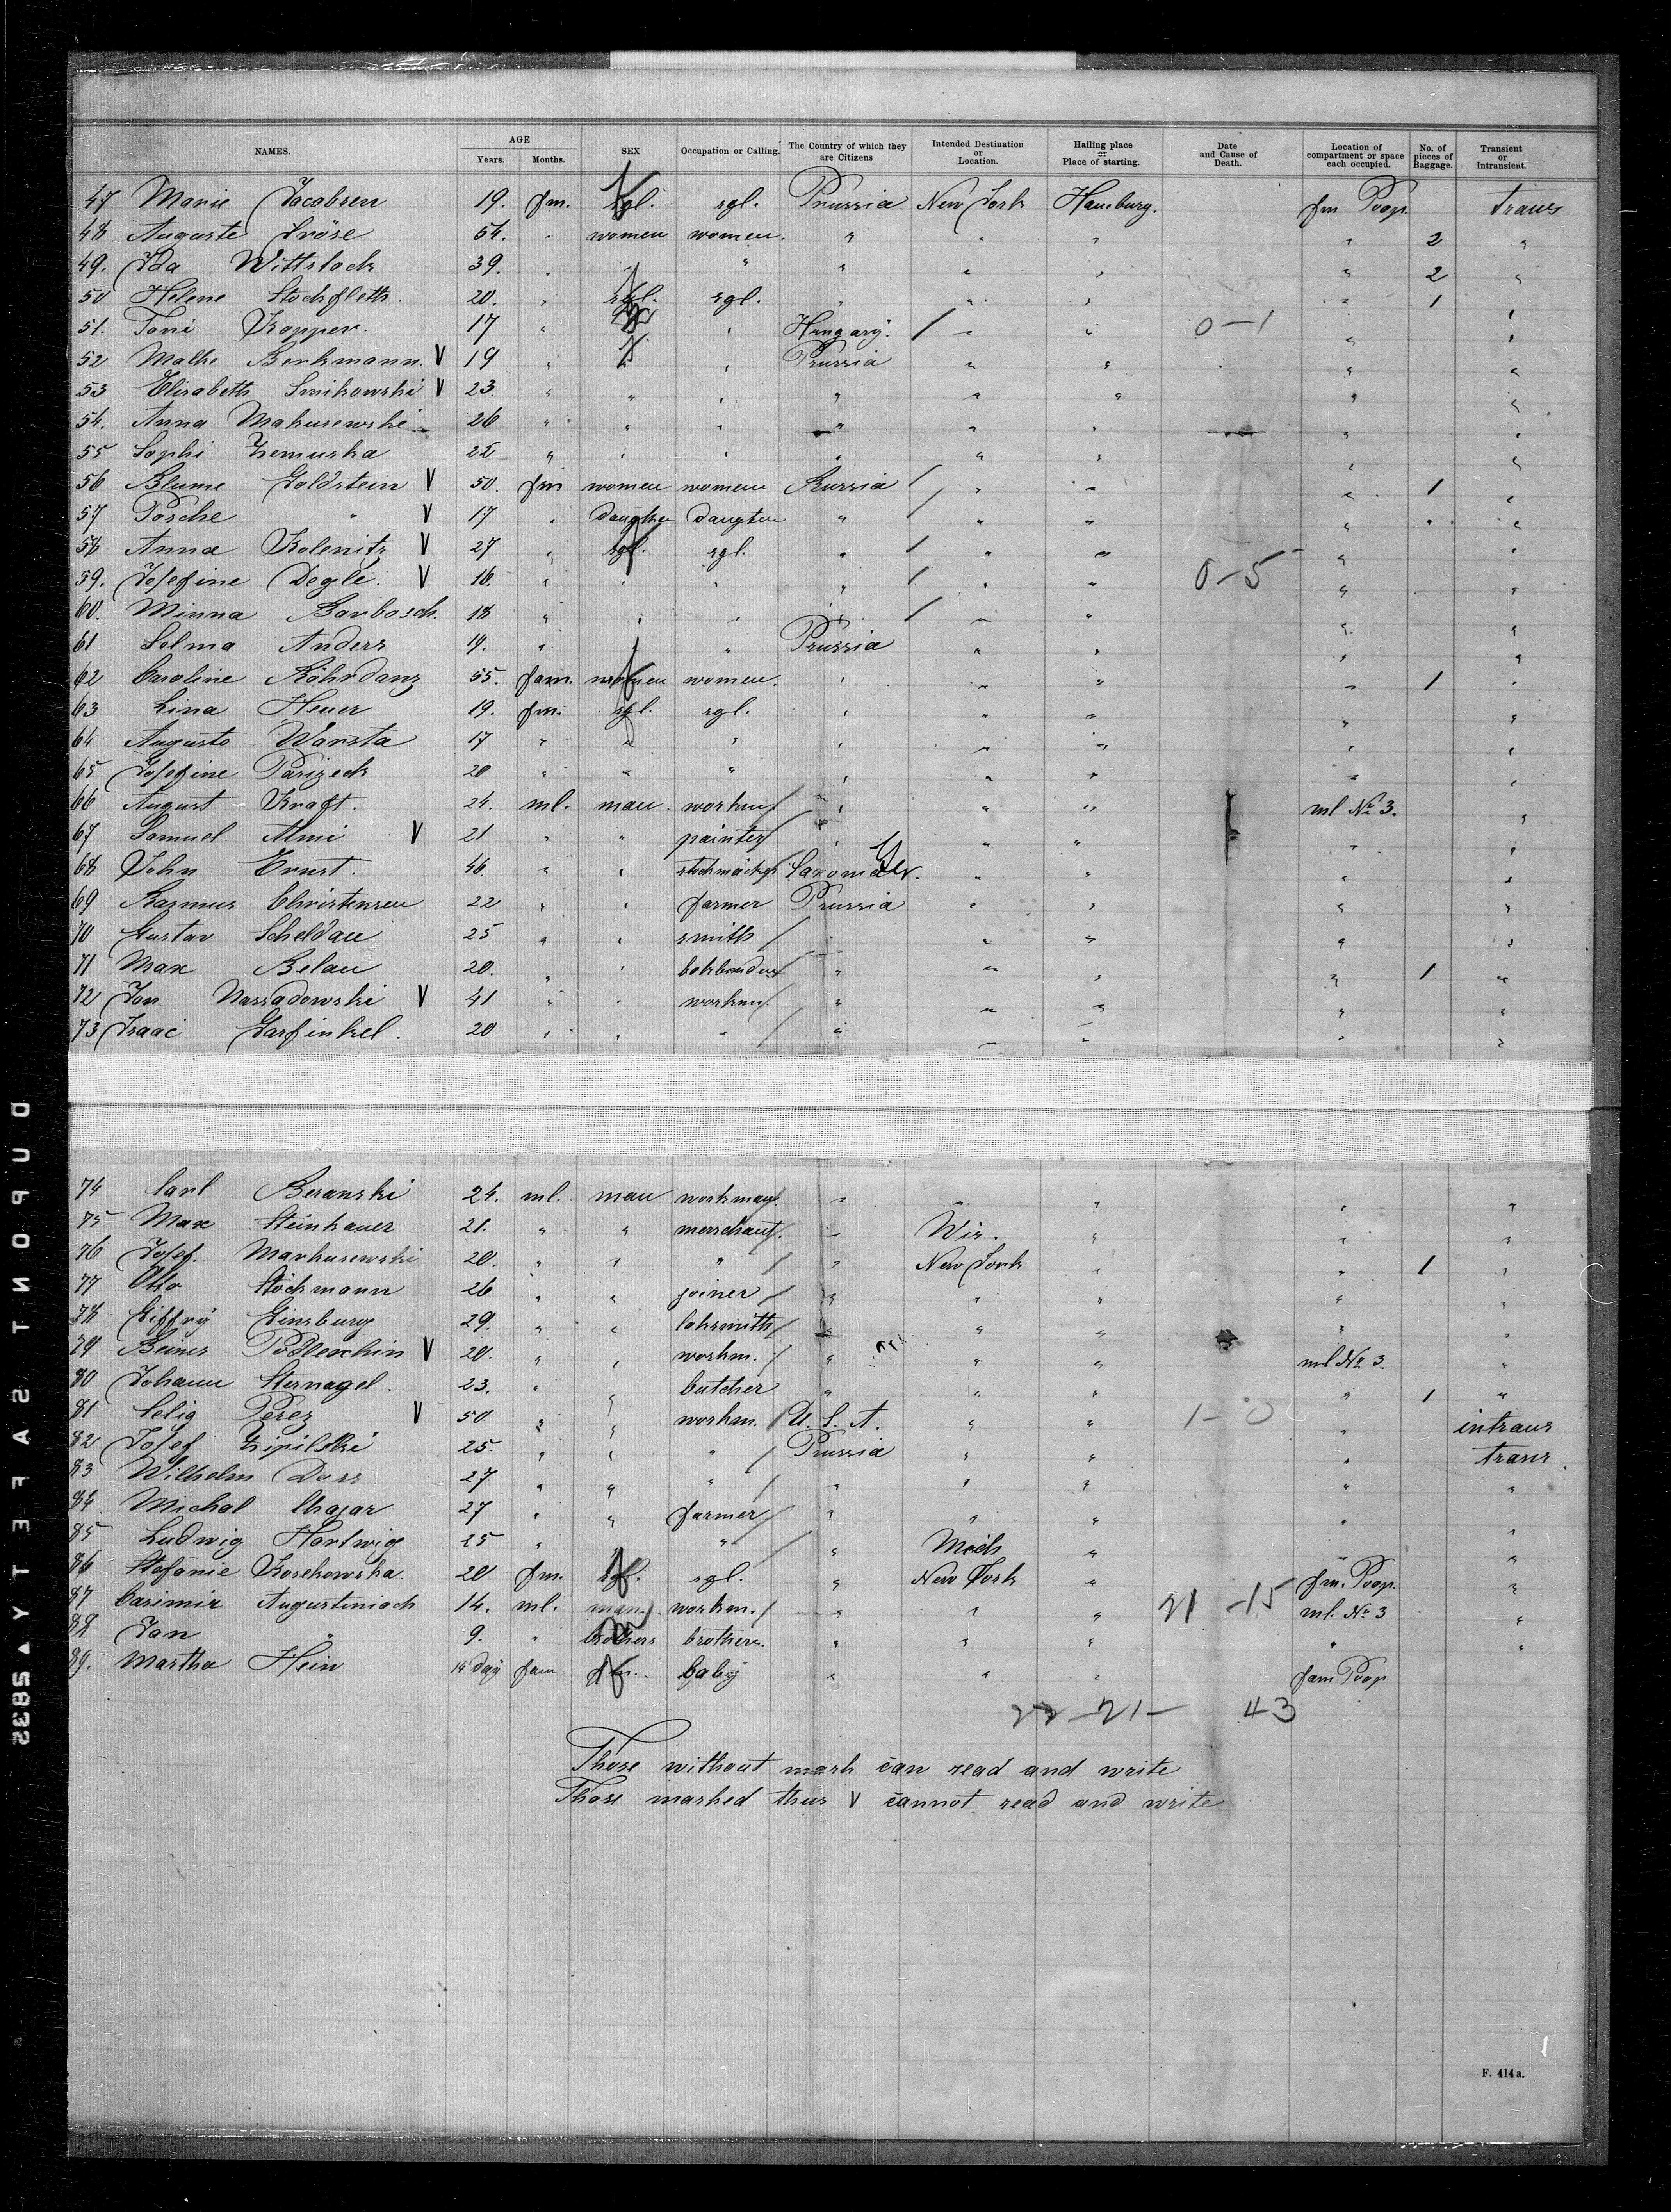 NAMES. AGE Years. Months. SEX Occupation or Calling. The Country of which they are Citizens Intended Destination or Location. Hailing place or Place of starting. Date and Cause of Death. Location of compartment or space each occupied. No. of pieces of Baggage. Transient or Intransient.
47 Marie Jacobsen 19. fm. sgl. sgl. Prussia New York Hamburg. fm Poop. trans
48 Auguste Fröse 54. " women women. " " " " 2 "
49. Ida Wittstock 39. " " " " " " " 2 "
50 Helene Stockfleth. 20. " sgl. sgl. " " " " 1 "
51. Toni Kopper. 17 " " Hungary. / " " 0-1 " "
52 Malke Berkmann. V 19 " " " Prussia " " " "
53 Elisabeth Smikowski V 23. " " " " " " " "
54. Anna Makusewski 26 " " " " " " " "
55 Sophi Zemuska 22 " " " " " " " "
56 Blume Goldstein V 50. fm women women Russia / " " " 1 "
57 Pesche " V 17 " daughter daugter " / " " " " "
58 Anna Kolenitz V 27 " sgl. sgl. " / " " " "
59. Josefine Degle. V 16. " " " " / " " 0-5 " "
60. Minna Barbasch. 18 " " " " / " " " "
61 Selma Anders 19. " " " Prussia " " " "
62 Caroline Röhrdanz 55. fam. women women. " " " " 1 "
63 Lina Heuer 19. fm. sgl. sgl. " " " " "
64 Auguste Warsta 17 " " " " " " " "
65 Josefine Parizek 20 " " " " " " " "
66 August Kraft. 24. ml. man. workm / " " " ml No 3. "
67 Samuel Almi V 21 " " painter / " " " " "
68 John Ernst. 46. " " Saxonia Ger. " " " "
69 Rasmus Christensen 22 " " farmer Prussia " " " "
70 Gustav Scheldau 25 " " smith / " " " " "
71 Max Belau 20. " " " " " " 1 "
72 Jan Nassadowski V 41 " " workm. " " " " "
73 Isaac Garfinkel. 20 " " " / " " " " "
74 Carl Beranski 24. ml. man workman / " " " " "
75 Max Steinhauer 21. " " merchant. / " Wis. " " "
76 Josef. Markusewski 20. " " " / " New York " " 1 "
77 Otto Stöckmann 26 " " joiner / " " " " "
78 Ginsburg 29. " " loksmith / " " " " "
79 Podleschin V 20. " " workm. / " " " ml No 3. "
80 Johann Sternagel. 23. " " butcher " " " " 1 "
81 Selig Perez V 50 " " workm. / U. S. A. " " 1-0 " intrans
82 Josef Zipilski 25. " " " / Prussia " " " trans.
83 Wilhelm Doss 27 " " " / " " " " "
84 Michal Chajar 27 " " farmer / " " " " "
85 Ludwig Hartwig 25 " " " / " Mich " " "
86 Stefanie Kosekowska. 20 fm. sgl. sgl. " New York " fm. Poop. "
87 Casimir Augustiniack 14. ml. man. workm. / " " " 21 -15 ml. No 3 "
88 Jan " 9. " brothers brothers. " " " " "
89. Martha Hein 14 days fam fm. baby " " " fam Poop.
22-21- 43
Those without mark can read and write
Those marked thus V cannot read and write
F. 414a.
DUPONT SAFETY ▲ 5835